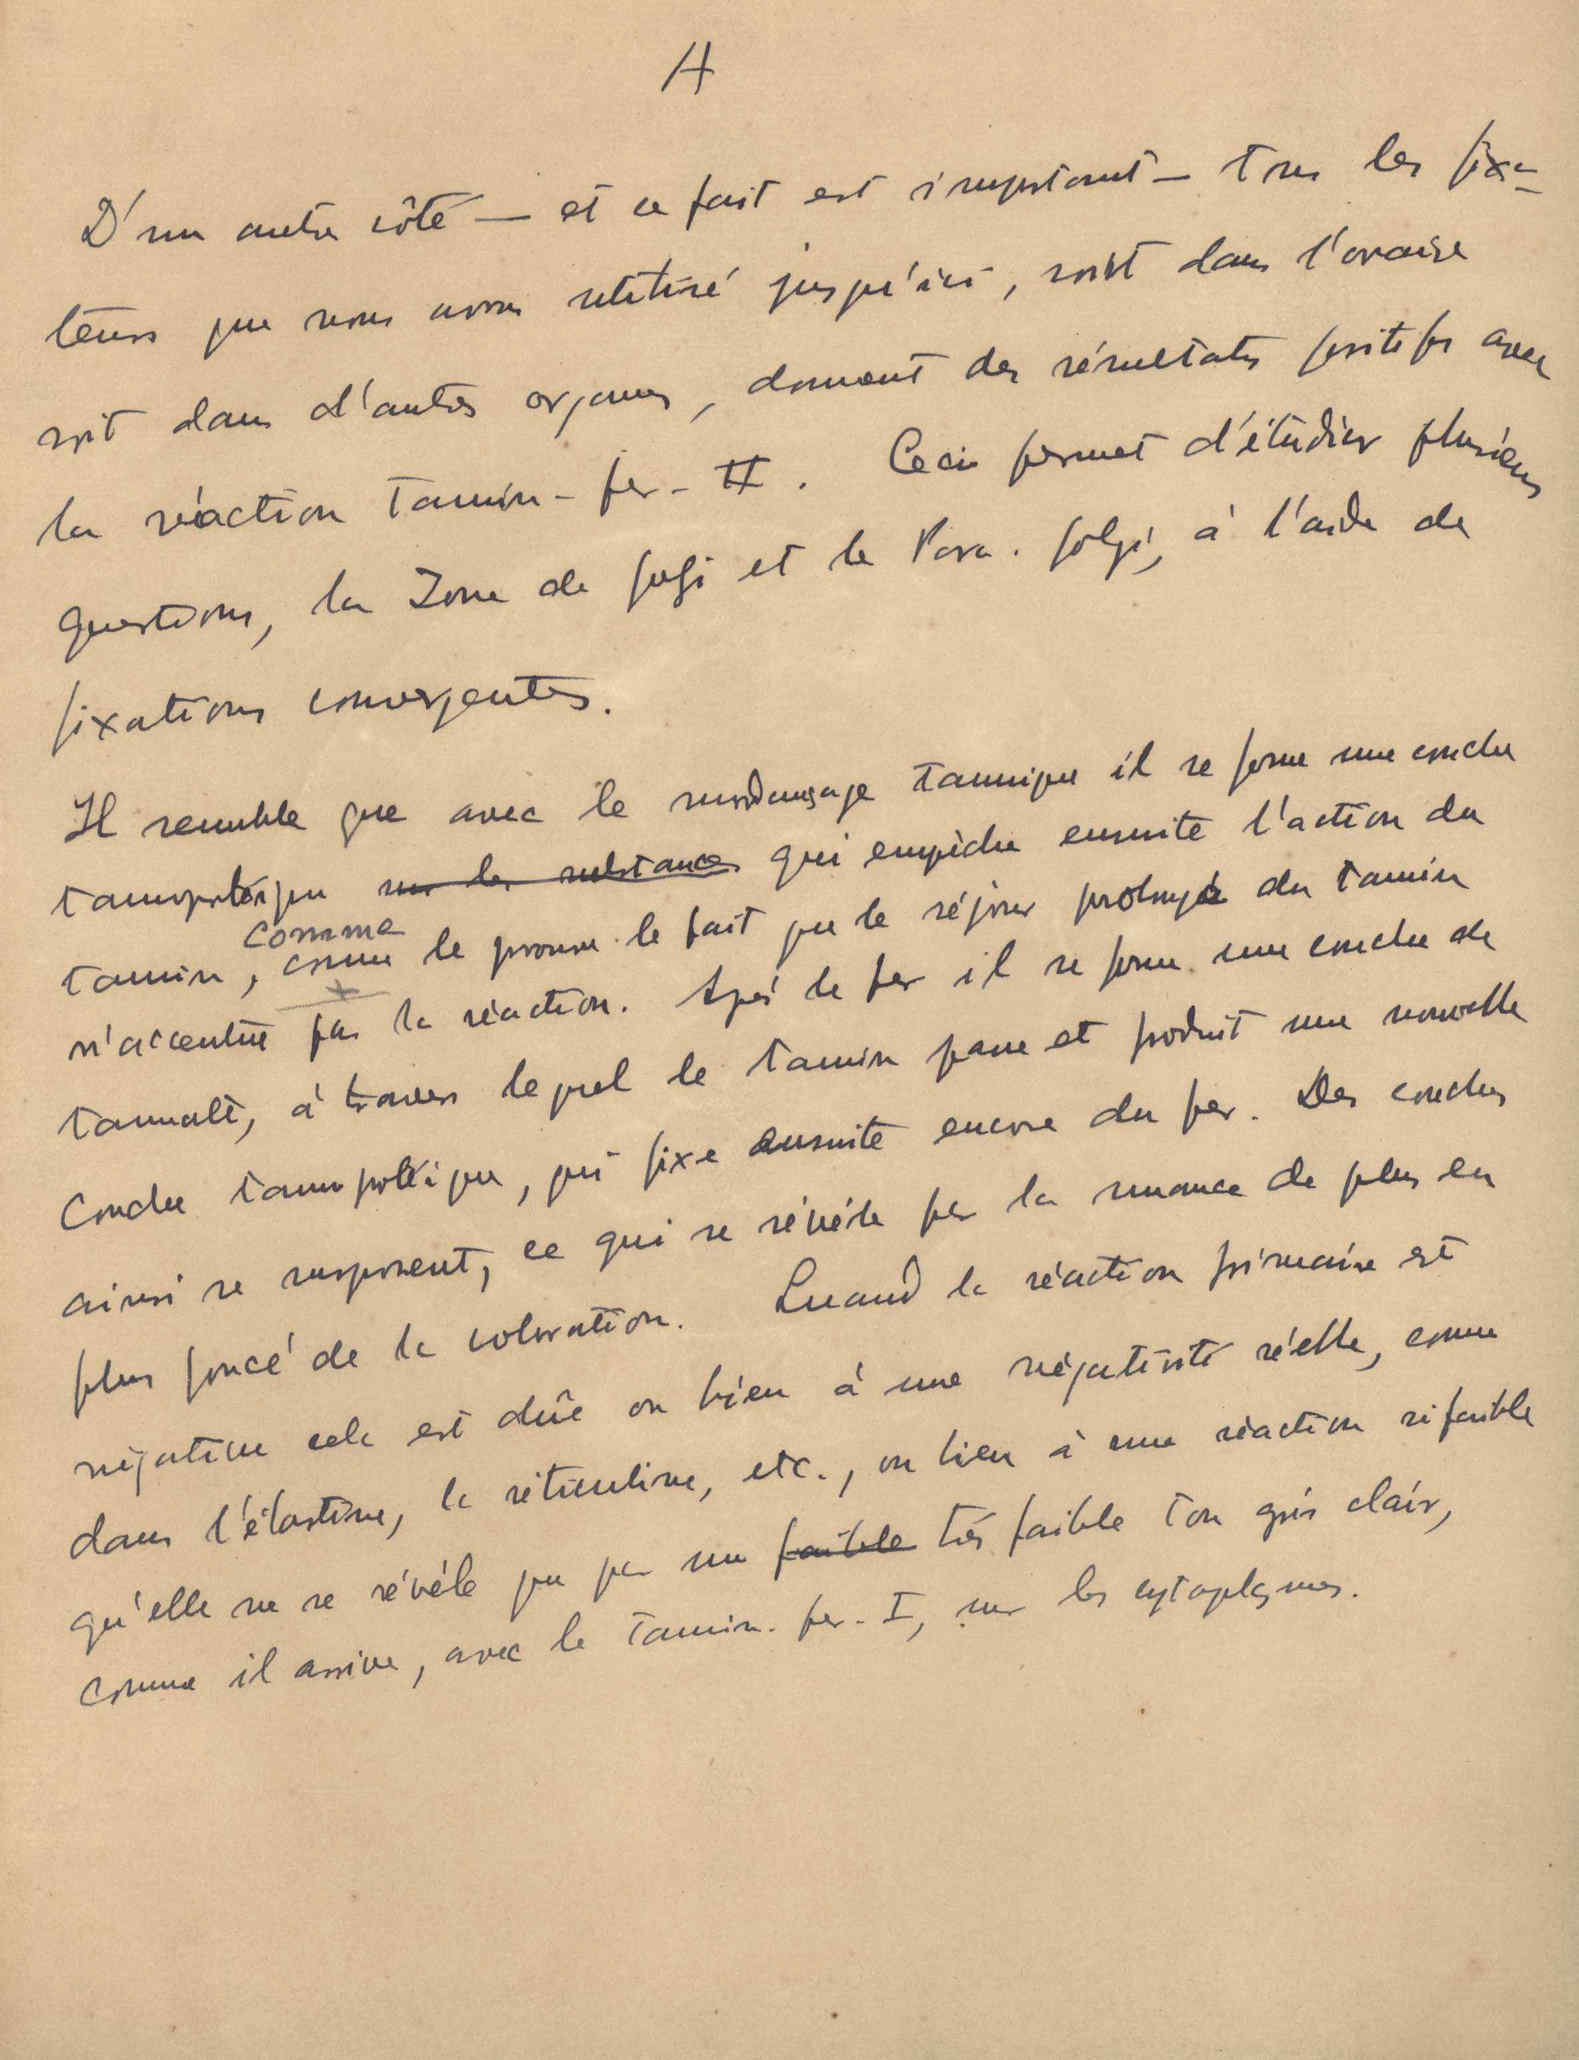 A
D'un autre côté — et ce fait est important — tous les fixa-
teurs que nous avons utilisé jusqu'ici, soit dans l'ovaire
soit dans d'autres organes, donnent des résultats positifs avec
la réaction Tannin-fer-II. Ceci permet d'étudier plusieurs
questions, la Zone de golgi et le Para-golgi, à l'aide de
fixations convergentes.
Il semble que avec le mordançage tannique il se forme une couche
tannoprotéique sur les substances qui empêche ensuite l'action du
comme
tannin, comme le prouve le fait que le séjour prolongé du tannin
n'accentue pas la réaction. Après le fer il se forme une couche de
tannate, à travers lequel le tannin passe et produit une nouvelle
couche tannoprotéique, qui fixe ensuite encore du fer. Des couches
ainsi se superposent, ce qui se révèle par la nuance de plus en
plus foncé de la coloration. Quand la réaction primaire est
négative cela est dûe ou bien à une négativité réelle, comme
dans l'élastine, la réticuline, etc., ou bien à une réaction si faible
qu'elle ne se révèle que par un faible très faible ton gris clair,
comme il arrive, avec le Tannin-fer-I, sur les cytoplasmes.